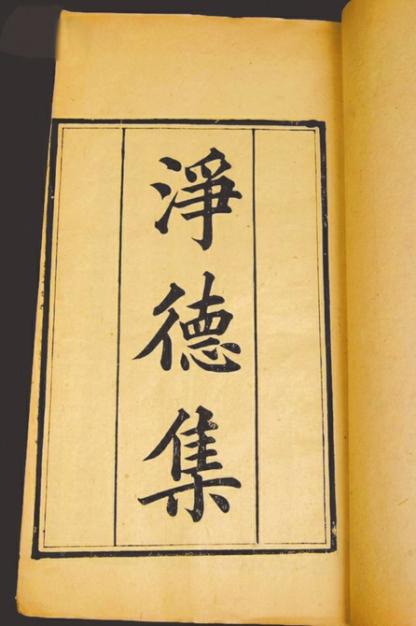 淨德集